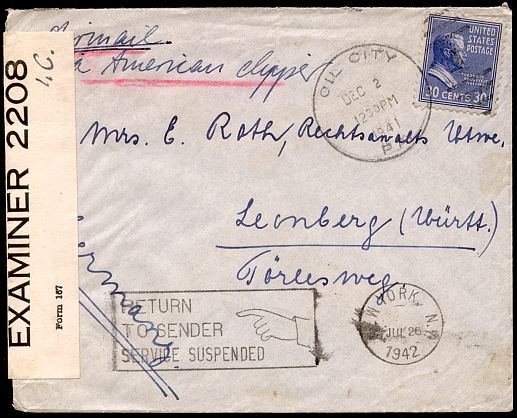 Airmail
via American Clipper
UNITED
STATES
POSTAGE
30 CENTS 30
OIL CITY
DEC 2
1230PM
1941
PA
Mrs. E. Roth, Rechtsanwalts Wtwe.
Leonberg (Württ.)
Törlesweg
Germany.
EXAMINER 2208
Form 167
I.C.
RETURN
TO SENDER
SERVICE SUSPENDED
NEW YORK, N.Y.
JUL 26
1942